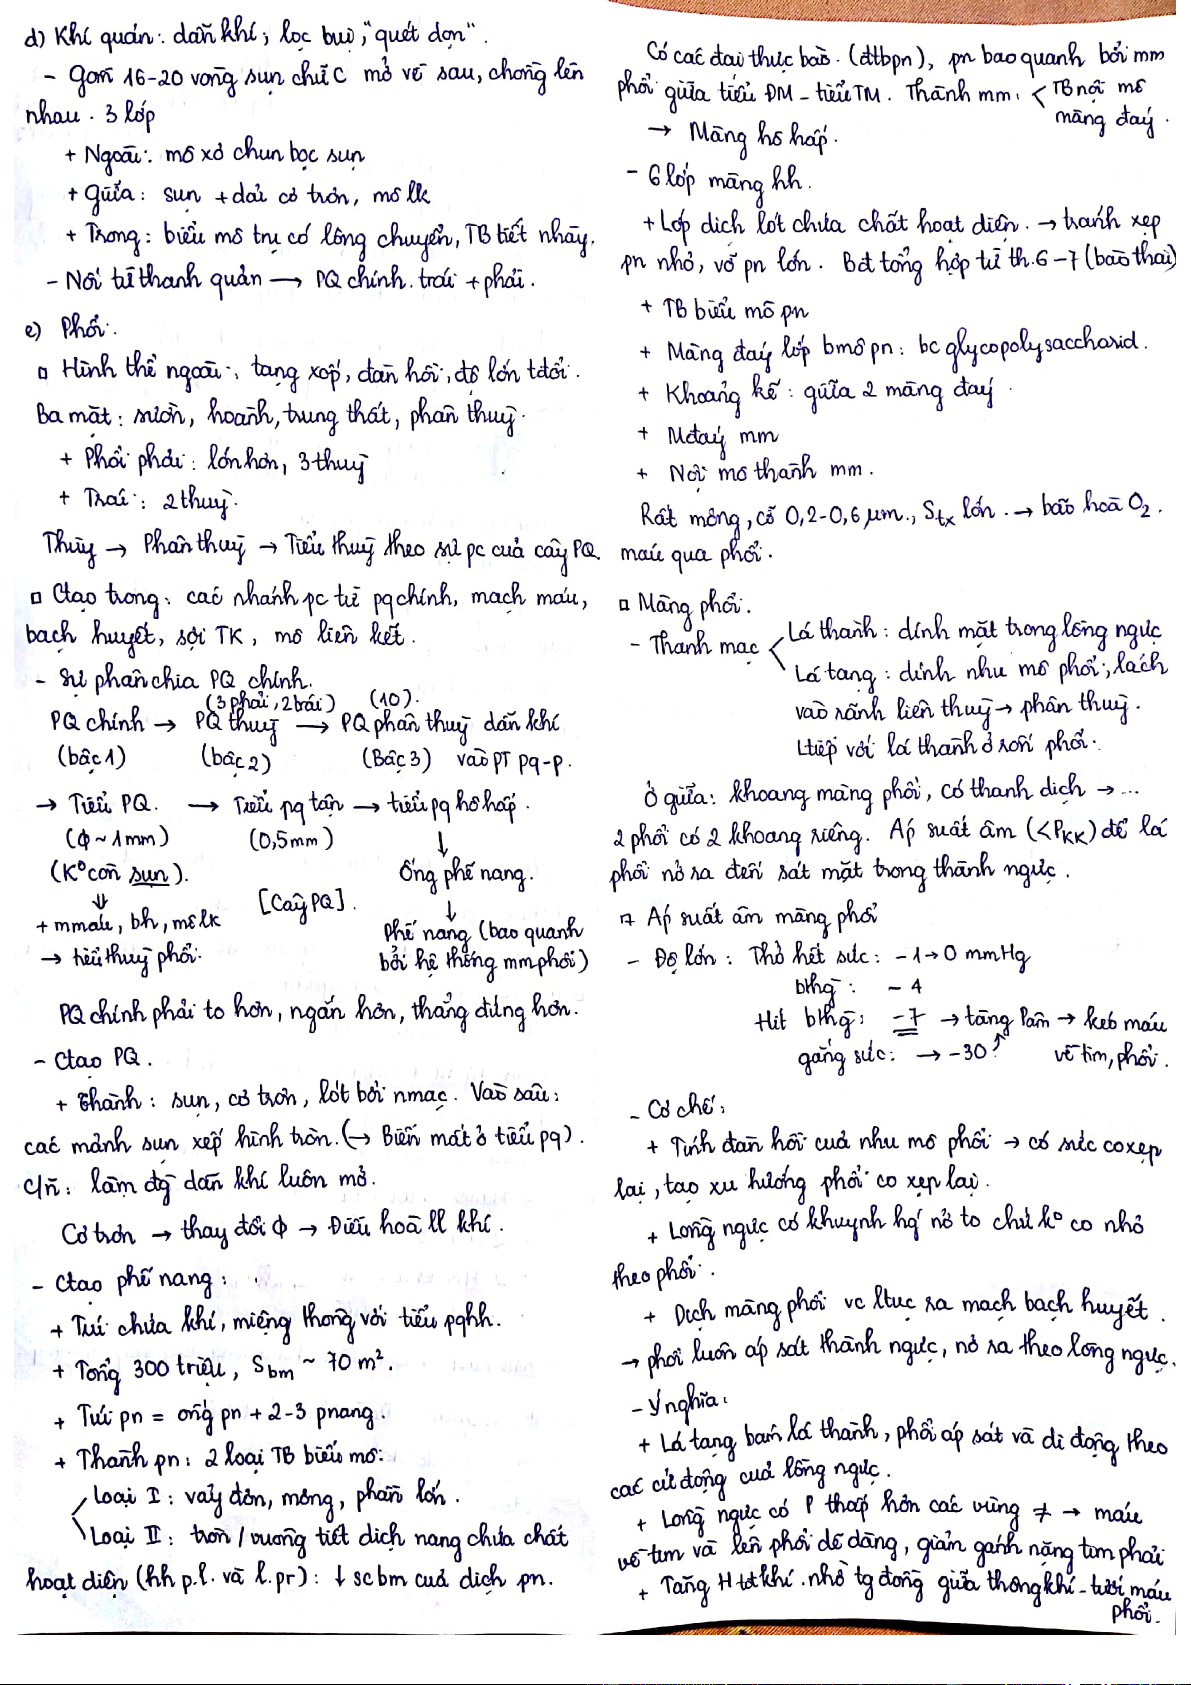 d) Khí quản: dẫn khí, lọc bụi, "quét dọn".
- Gồm 16-20 vòng sụn chữ C mở về sau, chồng lên
nhau. 3 lớp
+ Ngoài: mô xơ chun bọc sụn
+ Giữa: sụn + dải cơ trơn, mô lk
+ Trong: biểu mô trụ có lông chuyển, TB tiết nhầy.
- Nối từ thanh quản → PQ chính trái + phải.
e) Phổi:
□ Hình thể ngoài: tạng xốp, đàn hồi, độ lớn tđổi.
Ba mặt: sườn, hoành, trung thất, phân thuỳ.
+ Phổi phải: lớn hơn, 3 thuỳ
+ Trái: 2 thuỳ.
Thùy → Phân thuỳ → Tiểu thuỳ theo sự pc của cây PQ.
□ Ctạo trong: các nhánh pc từ pq chính, mạch máu,
bạch huyết, sợi TK, mô liên kết.
- Sự phân chia PQ chính.
(3 phải, 2 trái) (10).
PQ chính → PQ thuỳ → PQ phân thuỳ dẫn khí
(bậc 1) (bậc 2) (Bậc 3) vào PT pq-p.
→ Tiểu PQ. → Tiểu pq tận → tiểu pq hô hấp.
(ϕ ~ 1mm) (0,5mm) ↓
(K° còn sụn). Ống phế nang.
⇓ [Cây PQ]. ↓
+ mmáu, bh, mô lk Phế nang (bao quanh
→ tiểu thuỳ phổi. bởi hệ thống mm phổi)
PQ chính phải to hơn, ngắn hơn, thẳng đứng hơn.
- Ctạo PQ.
+ Thành: sụn, cơ trơn, lót bởi nmạc. Vào sâu:
các mảnh sụn xếp hình tròn. (→ Biến mất ở tiểu pq).
C/n̄: làm đg dẫn khí luôn mở.
Cơ trơn → thay đổi ϕ → Điều hoà ll khí.
- Ctạo phế nang:
+ Túi chứa khí, miệng thông với tiểu pqhh.
+ Tổng 300 triệu, Sbm ~ 70 m².
+ Túi pn = ống pn + 2-3 pnang.
+ Thành pn: 2 loại TB biểu mô:
Loại I: vảy đơn, mỏng, phần lớn.
Loại II: tròn / vuông tiết dịch nang chứa chất
hoạt diện (hh p.l. và l.pr): ↓ scbm của dịch pn.
Có các đại thực bào. (đtbpn), pn bao quanh bởi mm
phổi giữa tiểu ĐM - tiểu TM. Thành mm: < TB nội mô
màng đáy.
→ Màng hô hấp.
- 6 lớp màng hh.
+ Lớp dịch lót chứa chất hoạt diện. → tránh xẹp
pn nhỏ, vỡ pn lớn. Bđ tổng hợp từ th. 6-7 (bào thai)
+ TB biểu mô pn
+ Màng đáy lớp bmô pn: bc glycopolysaccharid.
+ Khoảng kẽ: giữa 2 màng đáy.
+ Mđáy mm
+ Nội mô thành mm.
Rất mỏng, cỡ 0,2-0,6 μm., Stx lớn. → bão hoà O₂.
máu qua phổi.
□ Màng phổi.
- Thanh mạc < Lá thành: dính mặt trong lồng ngực
Lá tạng: dính nhu mô phổi, lách
vào rãnh liên thuỳ → phân thuỳ.
Ltiếp với lá thành ở rốn phổi.
Ở giữa: khoang màng phổi, có thanh dịch → ...
2 phổi có 2 khoang riêng. Áp suất âm (<PKK) để lá
phổi nở ra đến sát mặt trong thành ngực.
Áp suất âm màng phổi
- Độ lớn: Thở hết sức: -1 → 0 mmHg
bthg: -4
Hít bthg: -7 → tăng Pâm → kéo máu
gắng sức: → -30 về tim, phổi.
- Cơ chế:
+ Tính đàn hồi của nhu mô phổi → có sức co xẹp
lại, tạo xu hướng phổi co xẹp lại.
+ Lồng ngực có khuynh hg nở to chứ k° co nhỏ
theo phổi.
+ Dịch màng phổi vc ltục ra mạch bạch huyết.
→ phổi luôn áp sát thành ngực, nở ra theo lồng ngực.
- Ý nghĩa:
+ Lá tạng bám lá thành, phổi áp sát và di động theo
các cử động của lồng ngực.
+ Lồng ngực có P thấp hơn các vùng ≠ → máu
về tim và lên phổi dễ dàng, giảm gánh nặng tim phải
+ Tăng H tđ khí nhờ tg đồng giữa thông khí - tưới máu
phổi.